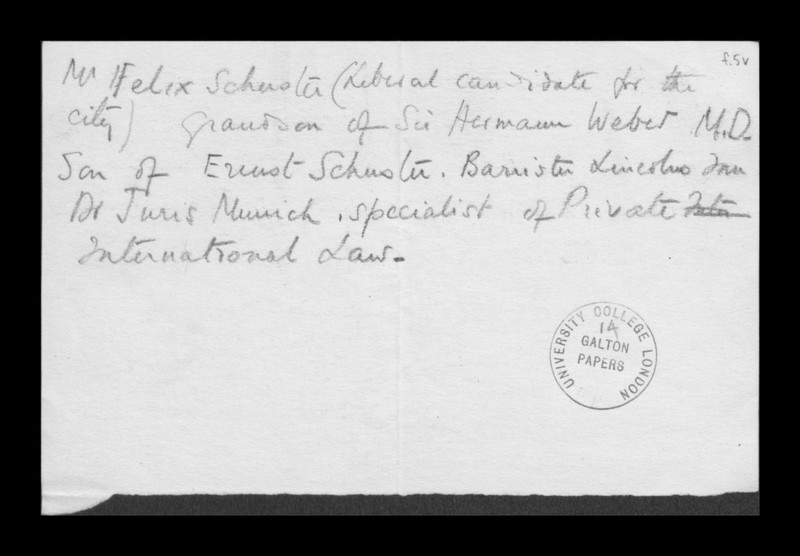 f.5v
Mr Felix Schuster (Liberal candidate for the
city) grandson of Sir Hermann Weber M.D.
Son of Ernst Schuster. Barrister Lincolns Inn
Dr Juris Munich, specialist of Private Inter
International Law.
UNIVERSITY COLLEGE LONDON
14
GALTON
PAPERS